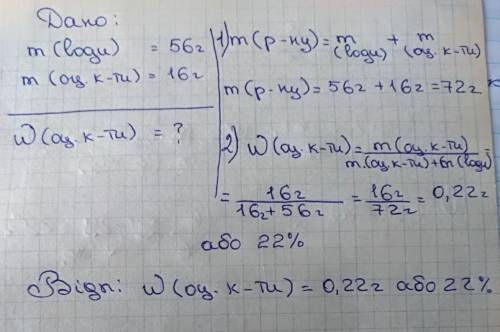 Дано:
m (води) = 56г
m (оц. к-ти) = 16г
W (оц. к-ти) = ?
1) m (р-ну) = m (води) + m (оц. к-ти)
m (р-ну) = 56г + 16г = 72г
2) W (оц. к-ти) = m (оц. к-ти) / m (оц. к-ти) + m (води) =
= 16г / 16г + 56г = 16г / 72г = 0,22г
або 22%
Відп: W (оц. к-ти) = 0,22г або 22%